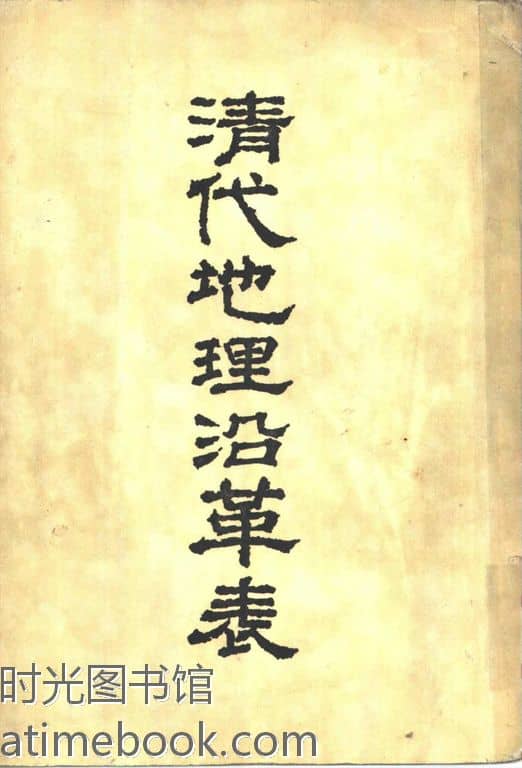 清代地理沿革表
时光图书馆
atimebook.com